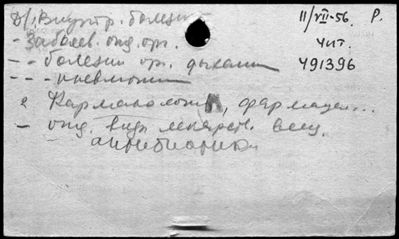 Д/. Внутр. болезни
11/VII-56. Р.
- Заболев. отд. орг.
чит.
- - болезни ор. дыхания
491396
- - - пневмонии
Фармакология, фармацев...
- отд. виды лекарств. вещ.
антибиотики